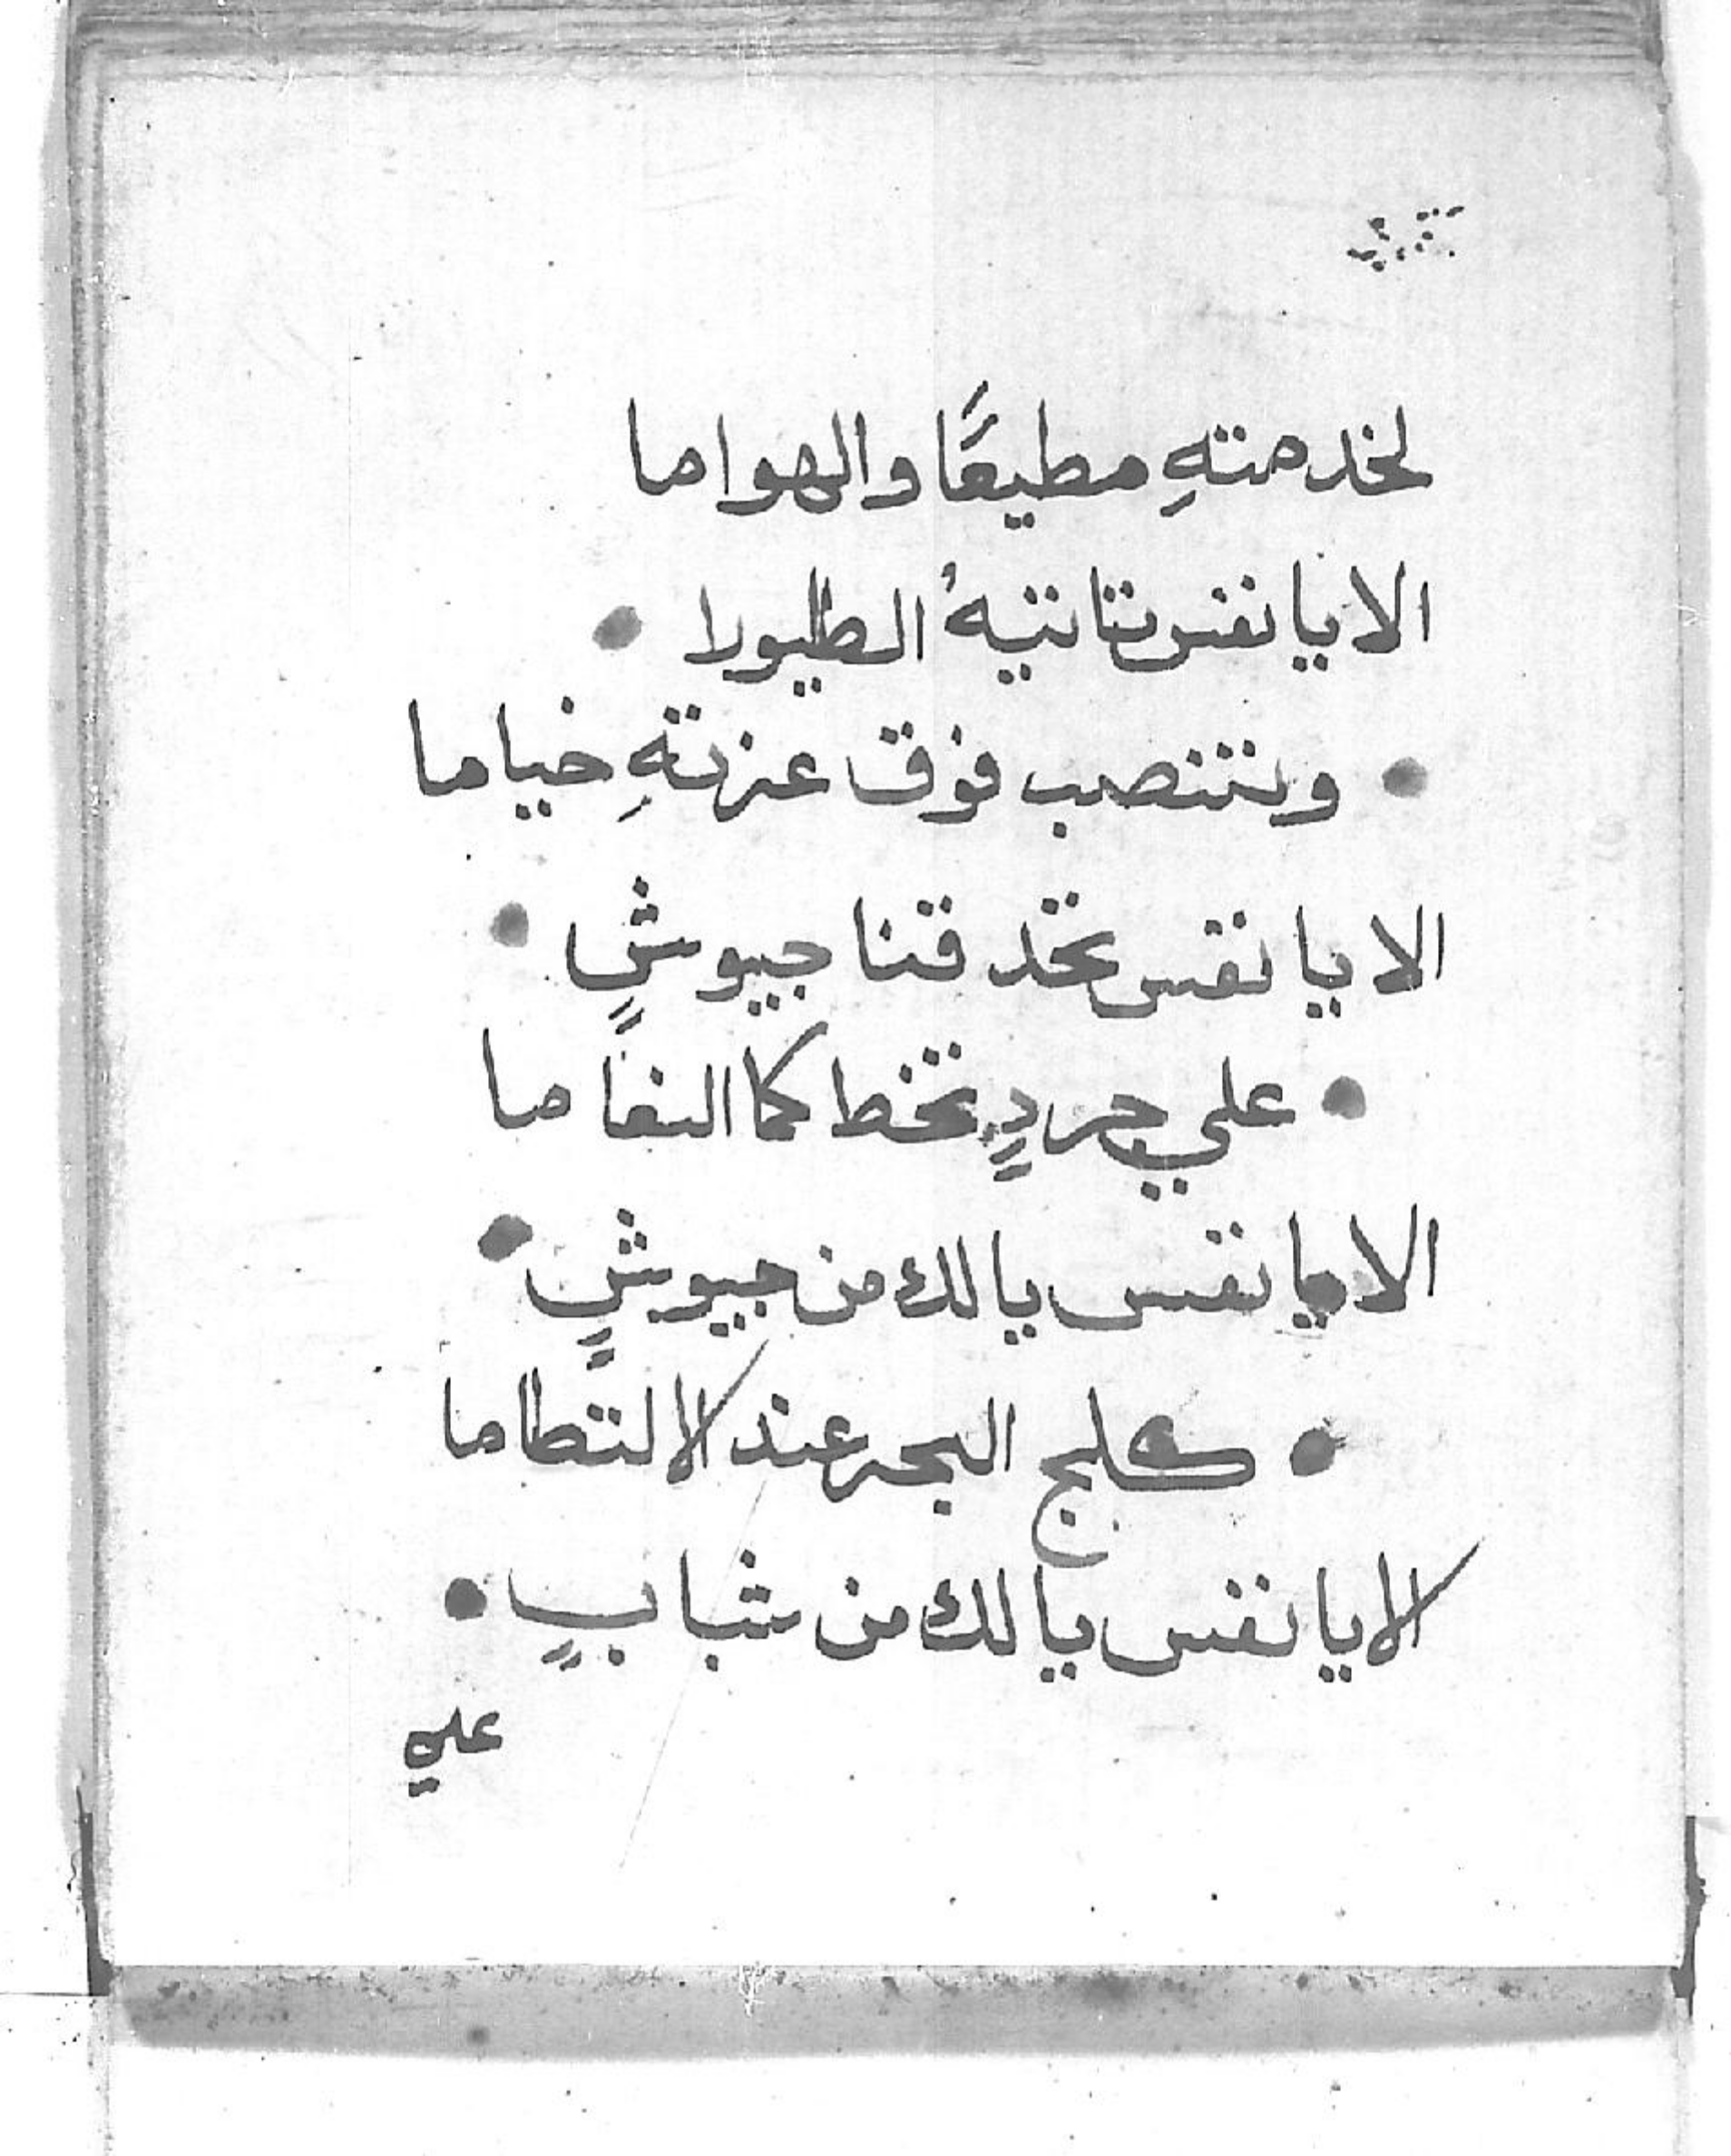 لخدمتهِ مطيعًا والهواما
الا يا نفس تاتيهُ الطيورا •
• وتنتصب فوق عزتهِ خياما
الا يا نفس تخد قنا جيوشٍ •
• علي جردٍ تخط كما النغاما
الا يا نفس يا لك من جيوشٍ •
• كلج البحر عند الالتطاما
الا يا نفس يا لك من شبابٍ •
علي